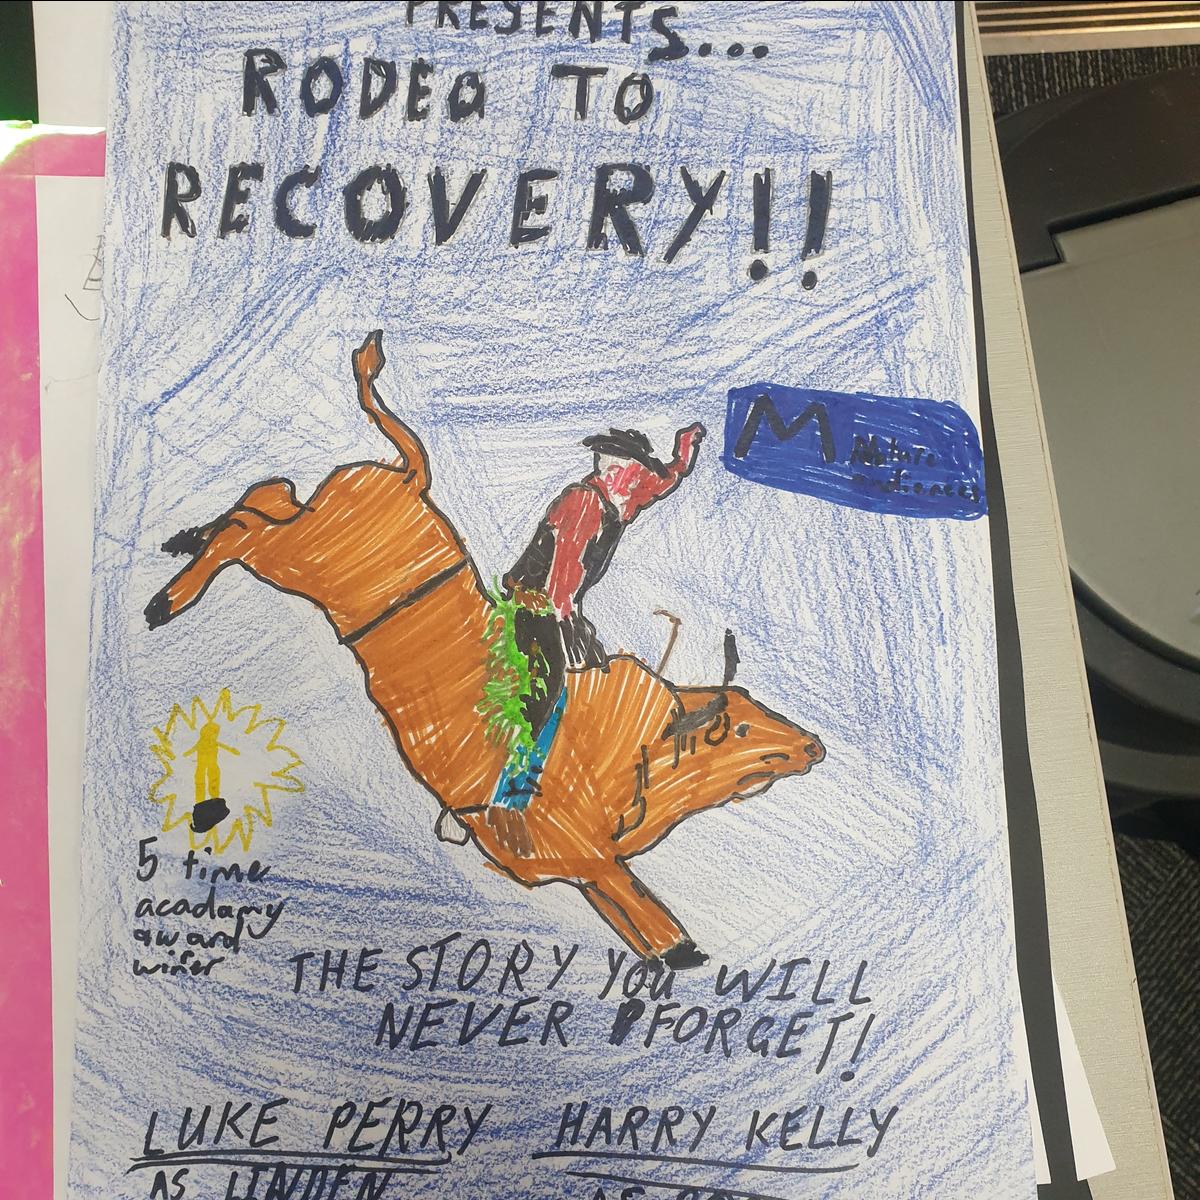 PRESENTS...
RODEO TO
RECOVERY!!
M Mature
audiences
5 time
acadamy
award
winer
THE STORY YOU WILL
NEVER FORGET!
LUKE PERRY HARRY KELLY
AS LINDEN AS